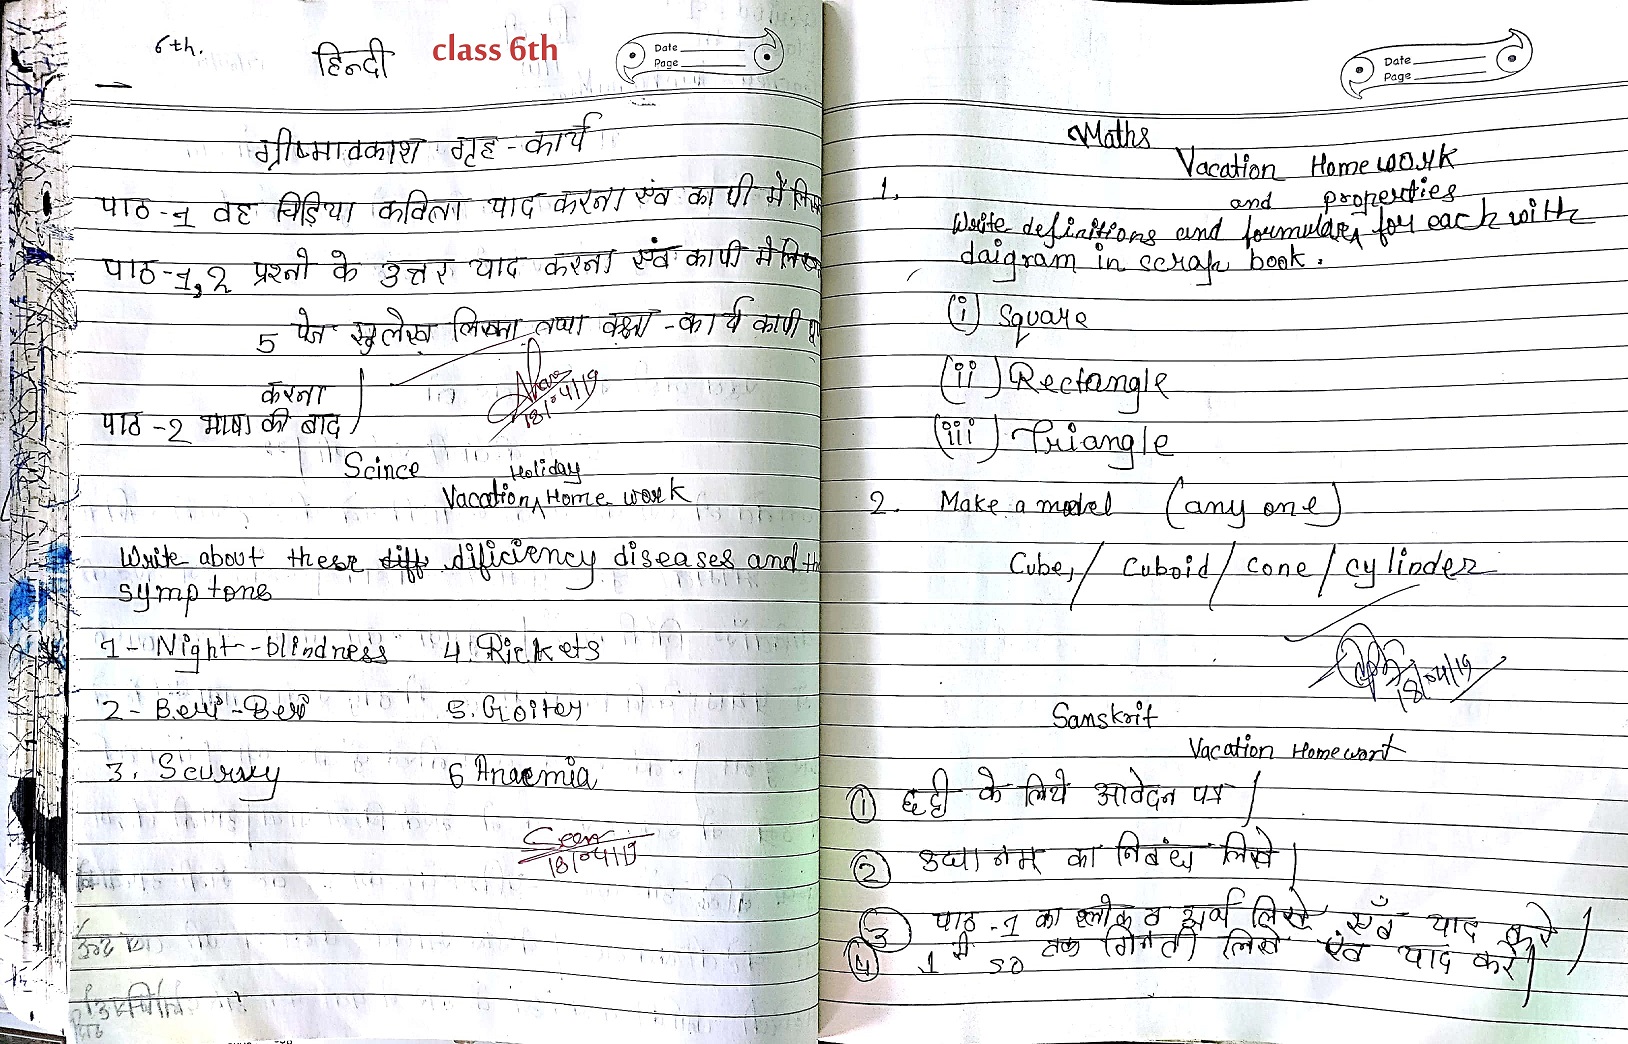 6th.
हिन्दी
class 6th
Date
Page
ग्रीष्मावकाश गृह-कार्य
पाठ-1 वह चिड़िया कविता याद करना एंव कापी में
पाठ-1,2 प्रश्नो के उत्तर याद करना एंव कापी मे
5 पेज सुलेख लिखना तथा कक्षा-कार्य कापी
करना
पाठ-2 भाषा की बाद
18/04/19
Scince
Holiday
Vacation Home work
Write about these dificiency diseases and
symptons
1- Night-blindness 4. Rickets
2- Beri-Beri 5. Goiter
3. Scurvy 6 Anaemia
Seen
18/04/19
Date
Page
Maths
Vacation Homework
1.
and properties
Write definitions and formulae, for each with
daigram in scrap book.
(i) Square
(ii) Rectangle
(iii) Triangle
2. Make a model (any one)
Cube,/ Cuboid/ cone/cylinder
18/04/19
Sanskrit
Vacation Homewort
① छुट्टी के लिये आवेदन पत्र
② उद्यानम् का निबंध लिखे
③ पाठ-1 का श्लोक व अर्थ लिखे एंव याद करे
④ 1 से 50 तक गिनती लिखे एंव याद करे